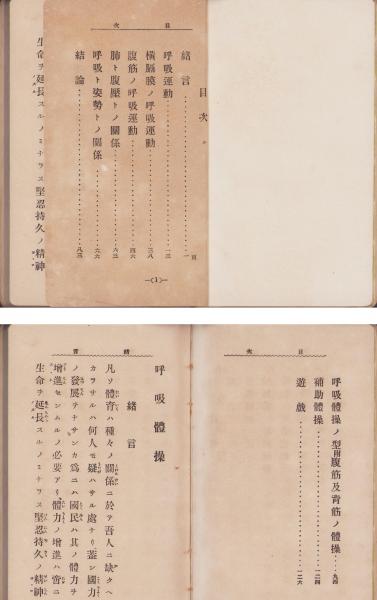 目次
目次
緒言‥‥‥‥‥‥‥‥‥‥‥‥‥‥‥‥一頁
呼吸運動‥‥‥‥‥‥‥‥‥‥‥‥‥‥一二
橫膈膜ノ呼吸運動‥‥‥‥‥‥‥‥‥‥三八
腹筋ノ呼吸運動‥‥‥‥‥‥‥‥‥‥‥四六
肺ト腹壓トノ關係‥‥‥‥‥‥‥‥‥‥六三
呼吸ト姿勢トノ關係‥‥‥‥‥‥‥‥‥六六
結論‥‥‥‥‥‥‥‥‥‥‥‥‥‥‥‥八三
—(1)—
生命ヲ延長スルノミナラス堅忍持久ノ精神
目次
呼吸體操ノ型附腹筋及背筋ノ體操‥‥‥九四
補助體操‥‥‥‥‥‥‥‥‥‥‥‥‥‥一二四
遊戲‥‥‥‥‥‥‥‥‥‥‥‥‥‥‥‥一二六
緒言
呼吸體操
緒言
凡ソ體育ハ種々ノ關係ニ於テ吾人ニ缺クヘ
カラサルハ何人モ疑ハサル處ナリ蓋シ國力
ノ發展ヲナサンカ爲ニハ國民ハ其ノ體力ヲ
增進センムルノ必要アリ體力ノ增進ハ啻ニ
生命ヲ延長スルノミナラス堅忍持久ノ精神